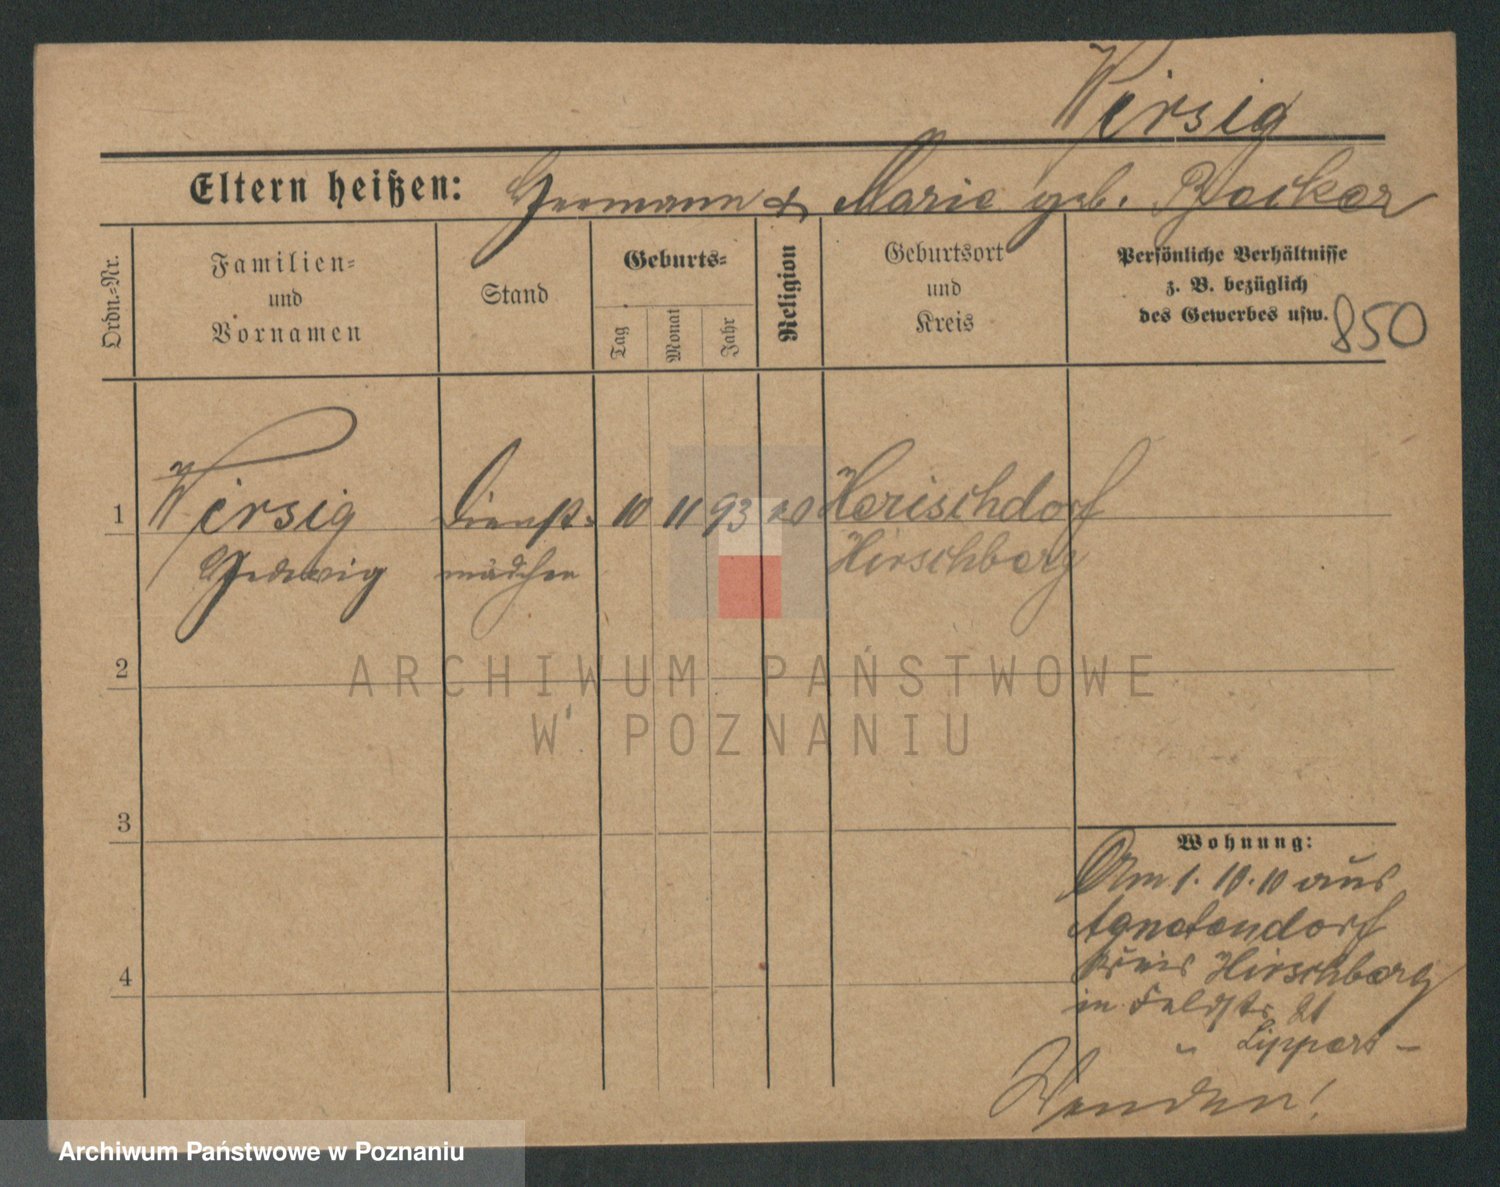 Wirsig
Eltern heißen: Hermann & Marie geb. Backer
Ordn.-Nr.
Familien-
und
Vornamen
Stand
Geburts-
Tag
Monat
Jahr
Religion
Geburtsort
und
Kreis
Persönliche Verhältnisse
z. B. bezüglich
des Gewerbes usw.
850
1 Wirsig Dienst- 10 11 93 Herischdorf
Hedwig mädchen Hirschberg
2
3
4
Wohnung:
Am 1.10.10 aus
Agnetendorf
Kreis Hirschberg
in Feldstr. 21
" Lippert -
Wenden!
ARCHIWUM PAŃSTWOWE
W POZNANIU
Archiwum Państwowe w Poznaniu